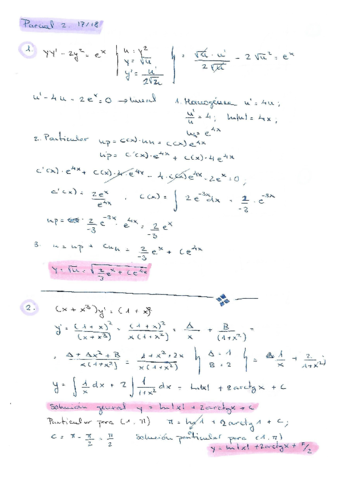 Parcial 2. 17/18
1. yy' - 2y² = eˣ | u = y² y = √u y' = u'/2√u | = √u · u'/2√u - 2√u² = eˣ
u' - 4u - 2eˣ = 0 → lineal 1. Homogénea u' = 4u;
u'/u = 4; ln|u| = 4x,
u_h = e⁴ˣ
2. Particular up = c(x)·un = c(x) e⁴ˣ
up' = c'(x)·e⁴ˣ + c(x)·4e⁴ˣ
c'(x)·e⁴ˣ + c(x)·4·e⁴ˣ - 4·c(x)e⁴ˣ - 2eˣ = 0,
c'(x) = 2eˣ/e⁴ˣ, c(x) = ∫ 2e⁻³ˣ dx = 2/-3 · e⁻³ˣ
up = 2/-3 e⁻³ˣ · e⁴ˣ = 2/-3 eˣ
3. u = up + cun = 2/-3 eˣ + ce⁴ˣ
y = √u = √(2/-3 eˣ + ce⁴ˣ)
2. (x + x³)y' = (1 + x)²
y' = (1+x)²/(x+x³) = (1+x)²/x(1+x²) = A/x + B/(1+x²) =
= A + Ax² + B/x(1+x²) = 1+x²+2x/x(1+x²) | A = 1 B = 2 | = 1/x + 2/1+x²
y = ∫ 1/x dx + 2 ∫ 1/1+x² dx = ln|x| + 2arctgx + C
Solución general y = ln|x| + 2arctgx + C
Particular para (1, π) π = ln1 + 2arctg1 + C;
C = π - π/2 = π/2 Solución particular para (1, π)
y = ln|x| + 2arctgx + π/2